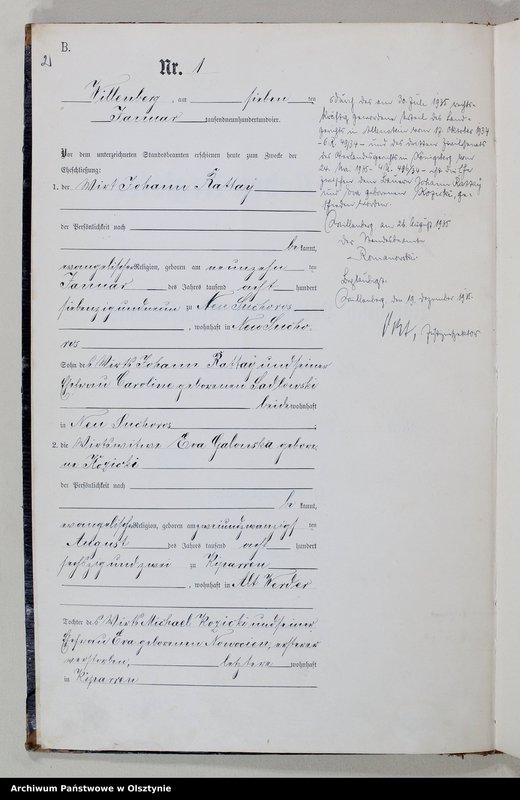 B.
2
Nr. 1
Willenberg, am sieben ten
Januar tausendneunhundert
Vor dem unterzeichneten Standesbeamten erschienen heute zum Zwecke der
Eheschließung:
1. der Wirt Johann Rattay
der Persönlichkeit nach
be kannt,
evangelischer Religion, geboren am neunzehn ten
Januar des Jahres tausend acht hundert
siebenzig und neun zu Neu Suchoros
, wohnhaft in Neu Sucho-
ros
Sohn des Wirts Johann Rattay und seiner
Ehefrau Caroline geborenen Sadlowski
beide wohnhaft
in Neu Suchoros .
2. die Wirtswitwe Eva Galonska gebore-
ne Kozicki
der Persönlichkeit nach
be kannt,
evangelischer Religion, geboren am zweiundzwanzigs ten
August des Jahres tausend acht hundert
sechszig und zwei zu Kiparren
, wohnhaft in Alt Werder
Tochter des Wirts Michael Kozicki und seiner
Ehefrau Eva geborenen , ersterer
verstorben, letztere wohnhaft
in Kiparren
Durch das am 30. Juli 1935 rechts-
kräftig gewordene Urteil des Land-
gerichts in Allenstein vom 17. Oktober 1934
und des dritten Zivilsenats
des Oberlandesgerichts in Königsberg vom
24. 1935 ist die Ehe
zwischen dem Bauern Johann Rattay
und Eva geborenen Kozicki, ge-
schieden worden.
Willenberg, am 26. August 1935
Der Standesbeamte
Romanowski.
Beglaubigt.
Ortelsburg, den 19. Dezember 193
, Justizinspektor
Archiwum Państwowe w Olsztynie